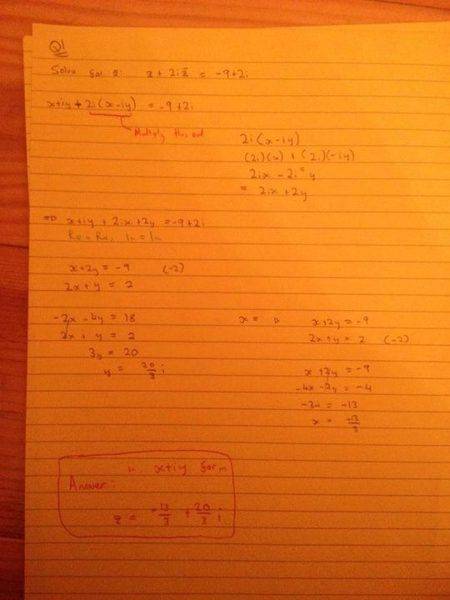 Q1
Solve for z: z + 2i z̄ = -9+2i
x+iy + 2i(x-iy) = -9+2i
Multiply this out
2i(x-iy)
(2i)(x) + (2i)(-iy)
2ix - 2i²y
= 2ix + 2y
=> x+iy + 2ix + 2y = -9+2i
Re = Re, Im = Im
x+2y = -9 (-2)
2x+y = 2
-2x -4y = 18
2x + y = 2
3y = 20
y = 20/3 i
x = x+2y = -9
2x+y = 2 (-2)
x + 2y = -9
-4x -2y = -4
-3x = -13
x = -13/3
in x+iy form
Answer:
z = -13/3 + 20/3 i